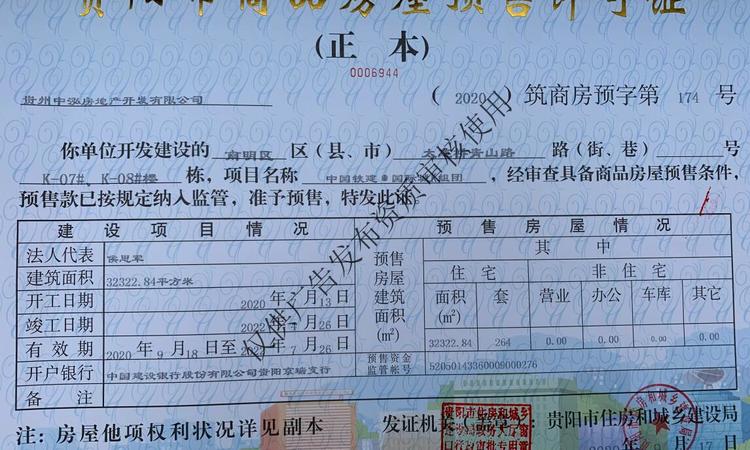 贵阳市商品房屋预售许可证
(正 本)
0006944
贵州中泓房地产开发有限公司 ( 2020 ) 筑商房预字第 174 号
你单位开发建设的 南明区 区(县、市) 青山路 路(街、巷) 号
K-07#、K-08#楼 栋,项目名称 中国铁建 国际 组团 ,经审查具备商品房屋预售条件,
预售款已按规定纳入监管,准予预售,特发此证
建设项目情况 预售房屋情况
法人代表 侯思军 预售房屋建筑面积(m²) 其中
建筑面积 32322.84平方米 住宅 非住宅
开工日期 2020 年 月 13 日 面积(m²) 套 营业 办公 车库 其它
竣工日期 月 26 日
有效期 2020 年 9 月 18 日至 年 7 月 26 日 32322.84 264 0.00 0.00 0.00 0.00
开户银行 中国建设银行股份有限公司贵阳京瑞支行 预售资金监管帐号 52050143360009000276
备注
注:房屋他项权利状况详见副本 发证机关(盖章):贵阳市住房和城乡建设局
月 17 日
仅供广告发布资质审核使用
贵阳市住房和城乡